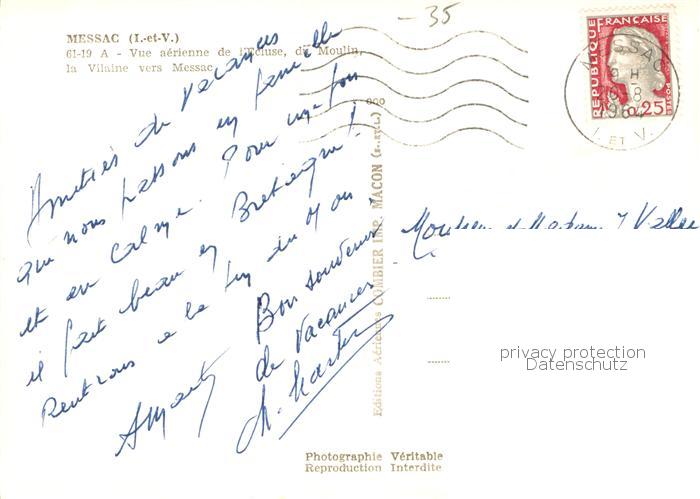 MESSAC (I.-et-V.)
61-19 A - Vue aérienne de l'Ecluse, du Moulin,
la Vilaine vers Messac
-35
REPUBLIQUE FRANÇAISE
POSTES
0,25
MESSAC
9 H
8
196
I. ET V.
Amitiés de vacances
que nous passons en famille
et au calme. Pour une fois
il fait beau en Bretagne!
Rentrons à la fin du mois
Bon souvenir
de vacances
Editions Aériennes COMBIER IMP. MACON (S.-et-L.)
Monsieur et Madame
privacy protection
Datenschutz
Photographie Véritable
Reproduction Interdite